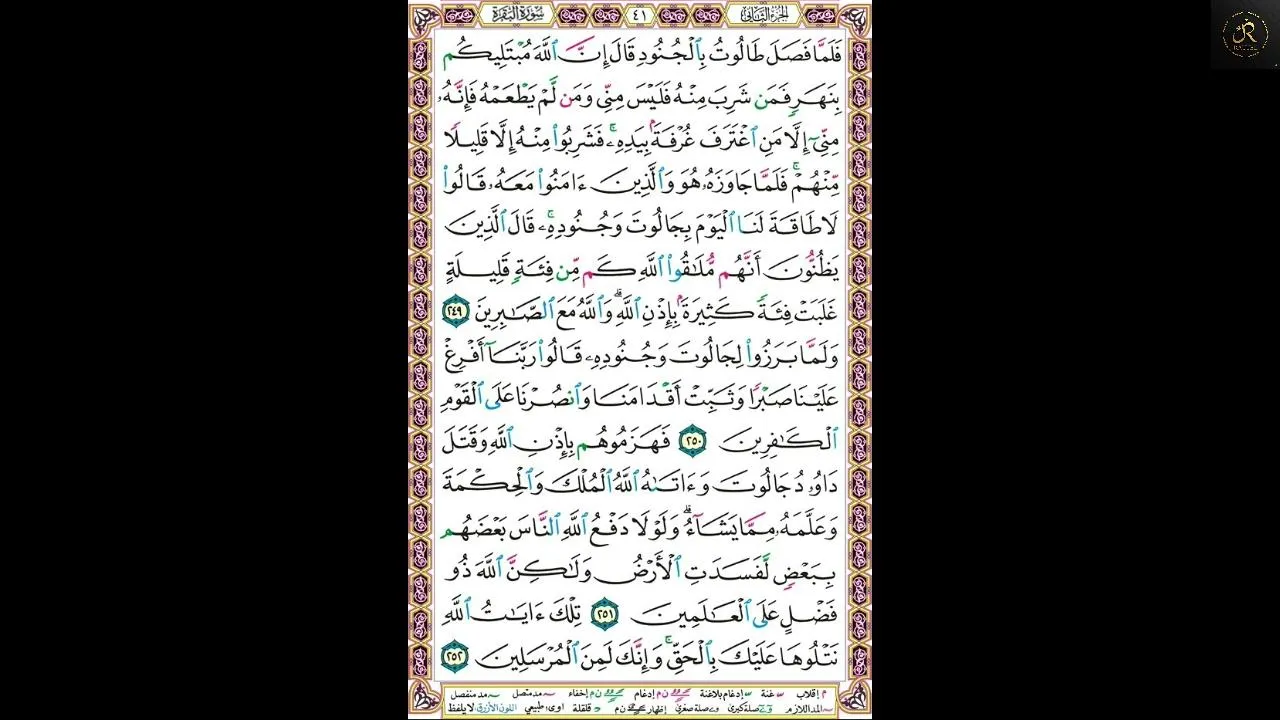 الجزء الثاني ٤١ سورة البقرة
فَلَمَّا فَصَلَ طَالُوتُ بِٱلْجُنُودِ قَالَ إِنَّ ٱللَّهَ مُبْتَلِيكُم
بِنَهَرٍ فَمَن شَرِبَ مِنْهُ فَلَيْسَ مِنِّى وَمَن لَّمْ يَطْعَمْهُ فَإِنَّهُۥ
مِنِّىٓ إِلَّا مَنِ ٱغْتَرَفَ غُرْفَةًۢ بِيَدِهِۦ ۚ فَشَرِبُوا۟ مِنْهُ إِلَّا قَلِيلًا
مِّنْهُمْ ۚ فَلَمَّا جَاوَزَهُۥ هُوَ وَٱلَّذِينَ ءَامَنُوا۟ مَعَهُۥ قَالُوا۟
لَا طَاقَةَ لَنَا ٱلْيَوْمَ بِجَالُوتَ وَجُنُودِهِۦ ۚ قَالَ ٱلَّذِينَ
يَظُنُّونَ أَنَّهُم مُّلَٰقُوا۟ ٱللَّهِ كَم مِّن فِئَةٍ قَلِيلَةٍ
غَلَبَتْ فِئَةً كَثِيرَةًۢ بِإِذْنِ ٱللَّهِ ۗ وَٱللَّهُ مَعَ ٱلصَّٰبِرِينَ ٢٤٩
وَلَمَّا بَرَزُوا۟ لِجَالُوتَ وَجُنُودِهِۦ قَالُوا۟ رَبَّنَآ أَفْرِغْ
عَلَيْنَا صَبْرًا وَثَبِّتْ أَقْدَامَنَا وَٱنصُرْنَا عَلَى ٱلْقَوْمِ
ٱلْكَٰفِرِينَ ٢٥٠ فَهَزَمُوهُم بِإِذْنِ ٱللَّهِ وَقَتَلَ
دَاوُۥدُ جَالُوتَ وَءَاتَىٰهُ ٱللَّهُ ٱلْمُلْكَ وَٱلْحِكْمَةَ
وَعَلَّمَهُۥ مِمَّا يَشَآءُ ۗ وَلَوْلَا دَفْعُ ٱللَّهِ ٱلنَّاسَ بَعْضَهُم
بِبَعْضٍ لَّفَسَدَتِ ٱلْأَرْضُ وَلَٰكِنَّ ٱللَّهَ ذُو
فَضْلٍ عَلَى ٱلْعَٰلَمِينَ ٢٥١ تِلْكَ ءَايَٰتُ ٱللَّهِ
نَتْلُوهَا عَلَيْكَ بِٱلْحَقِّ ۚ وَإِنَّكَ لَمِنَ ٱلْمُرْسَلِينَ ٢٥٢
م إقلاب غنة إدغام بلاغنة ن م إدغام ن م إخفاء مد متصل مد منفصل
المد اللازم صلة كبرى صلة صغرى إظهار ن م قلقلة اوى طبيعي اللون الأزرق لا يلفظ